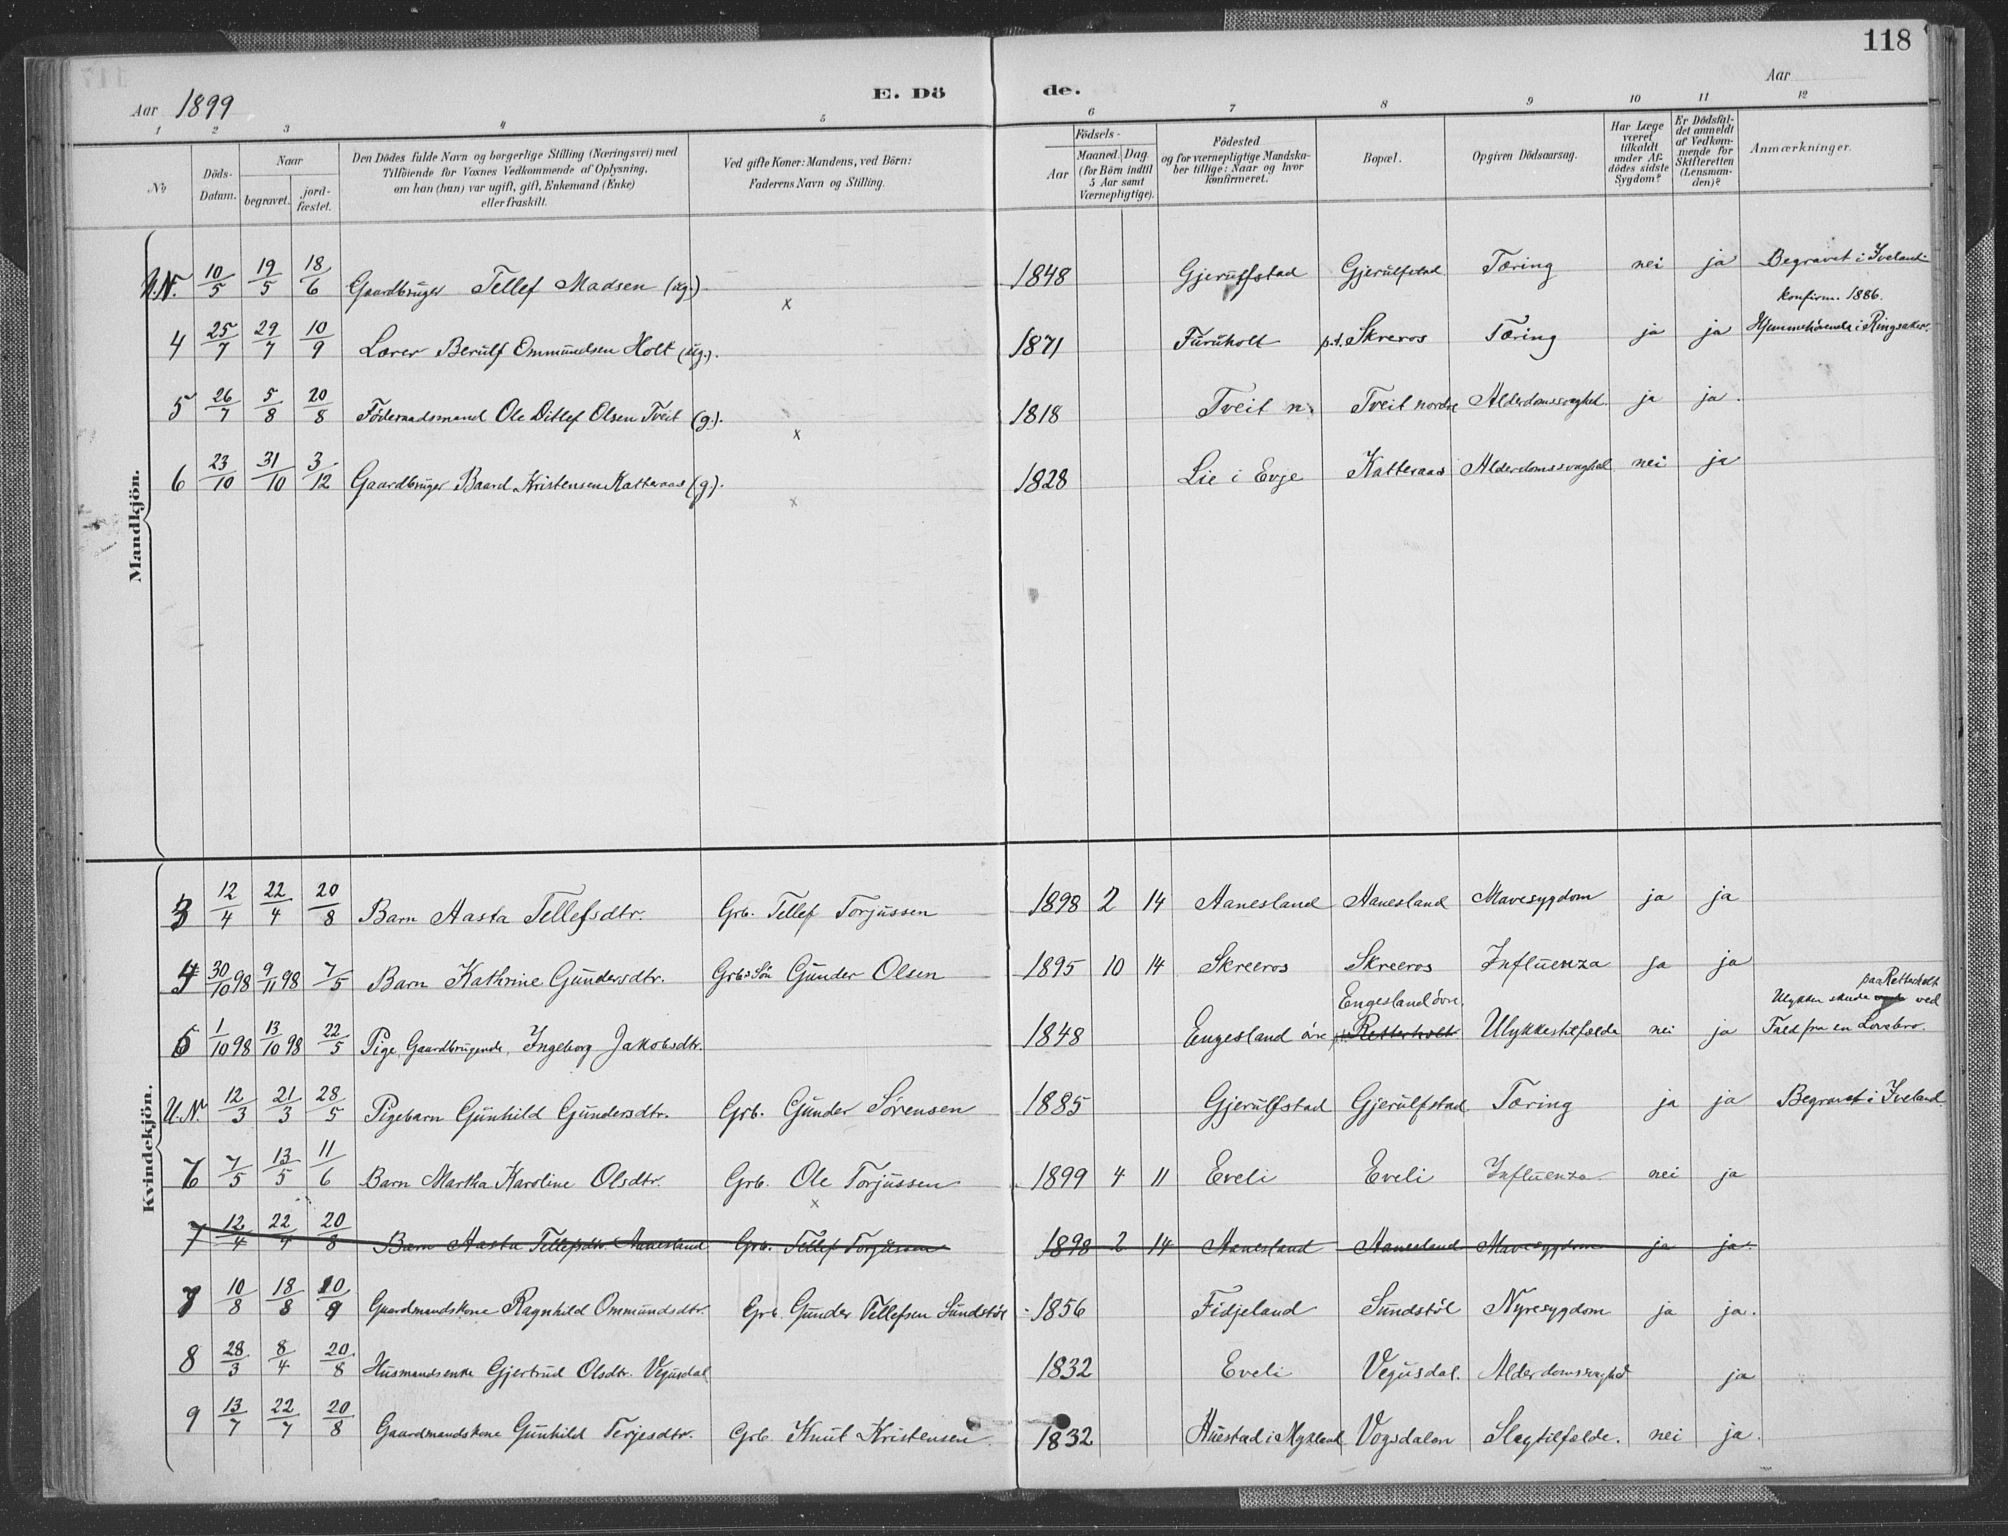 118
Aar 1899
E. Dö de.
Aar
1 2 3 4 5 6 7 8 9 10 11 12
No
Döds-Datum.
Naar begravet. jordfæstet.
Den Dödes fulde Navn og borgerlige Stilling (Næringsvei) med
Tilföiende for Voxnes Vedkommende af Oplysning,
om han (hun) var ugift, gift, Enkemand (Enke)
eller fraskilt.
Ved gifte Koner: Mandens, ved Börn:
Faderens Navn og Stilling.
Födsels-
Aar Maaned. Dag
(for Börn indtil 5 Aar samt Værnepligtige).
Födested
og for værnepligtige Mandskaber tillige: Naar og hvor konfirmeret.
Bopæl.
Opgiven Dödsaarsag.
Har Læge været tilkaldt under Afdödes sidste Sygdom?
Er Dödsfaldet anmeldt af Vedkommende for Skifteretten (Lensmanden)?
Anmærkninger.
Mandkjön.
U.N. 10/5 19/5 18/6 Gaardbruger Tellef Madsen (ug.) x 1848 Gjerulfstad Gjerulfstad Tæring nei ja Begravet i Iveland
4 25/7 29/7 10/9 Lærer Berulf Ommundsen Holt (ug.). 1871 Furuholt p.t. Skreros Tæring ja ja konfirm. 1886. Hjemmehörende i Ringsaker.
5 26/7 5/8 20/8 Föderaadsmand Ole Ditlef Olsen Tveit (g.). x 1818 Tveit n. Tveit nordre Alderdomssvaghed. ja ja.
6 23/10 31/10 3/12 Gaardbruger Baard Kristensen Katteraas (g). x 1828 Lie i Evje Katteraas Alderdomssvaghed nei ja
Kvindekjön.
3 12/4 22/4 20/8 Barn Aasta Tellefsdtr. Grb. Tellef Torjussen 1898 2 14 Aanesland Aanesland Mavesygdom ja ja
4 30/10 98 9/11 98 7/5 Barn Kathrine Gundersdtr. Grbs Sön Gunder Olsen 1895 10 14 Skreeros Skreeros Influenza ja ja
5 1/10 98 13/10 98 22/5 Pige, Gaardbrugende, Ingeborg Jakobsdtr. 1848 Engesland övre Engesland övre. Retterholt Ulykkestilfælde nei ja Ulykken skede paa Retterholt ved Fald fra en Lovebro.
U.N. 12/3 21/3 28/5 Pigebarn Gunhild Gundersdtr. Grb. Gunder Sörensen 1885 Gjerulfstad Gjerulfstad Tæring ja ja Begravet i Iveland
6 7/5 13/5 11/6 Barn Martha Karoline Olsdtr. Grb. Ole Torjussen x 1899 4 11 Eveli Eveli Influenza nei ja
7 12/4 22/4 20/8 Barn Aasta Tellefsdtr. Aanesland Grb. Tellef Torjussen 1898 2 14 Aanesland Aanesland Mavesygdom ja ja.
7 10/8 18/8 10/9 Gaardmandskone Ragnhild Ommundsdtr. Grb. Gunder Tellefsen Sundstöl 1856 Fidjeland Sundstöl Nyresygdom ja ja.
8 28/3 8/4 20/8 Husmandsenke Gjertrud Olsdtr. Vegusdal 1832 Eveli Vegusdal. Alderdomssvaghed ja
9 13/7 22/7 20/8 Gaardmandskone Gunhild Terjesdtr. Grb. Knut Kristensen 1832 Huestad i Mykland Vogsdalen Slagtilfælde. nei ja.